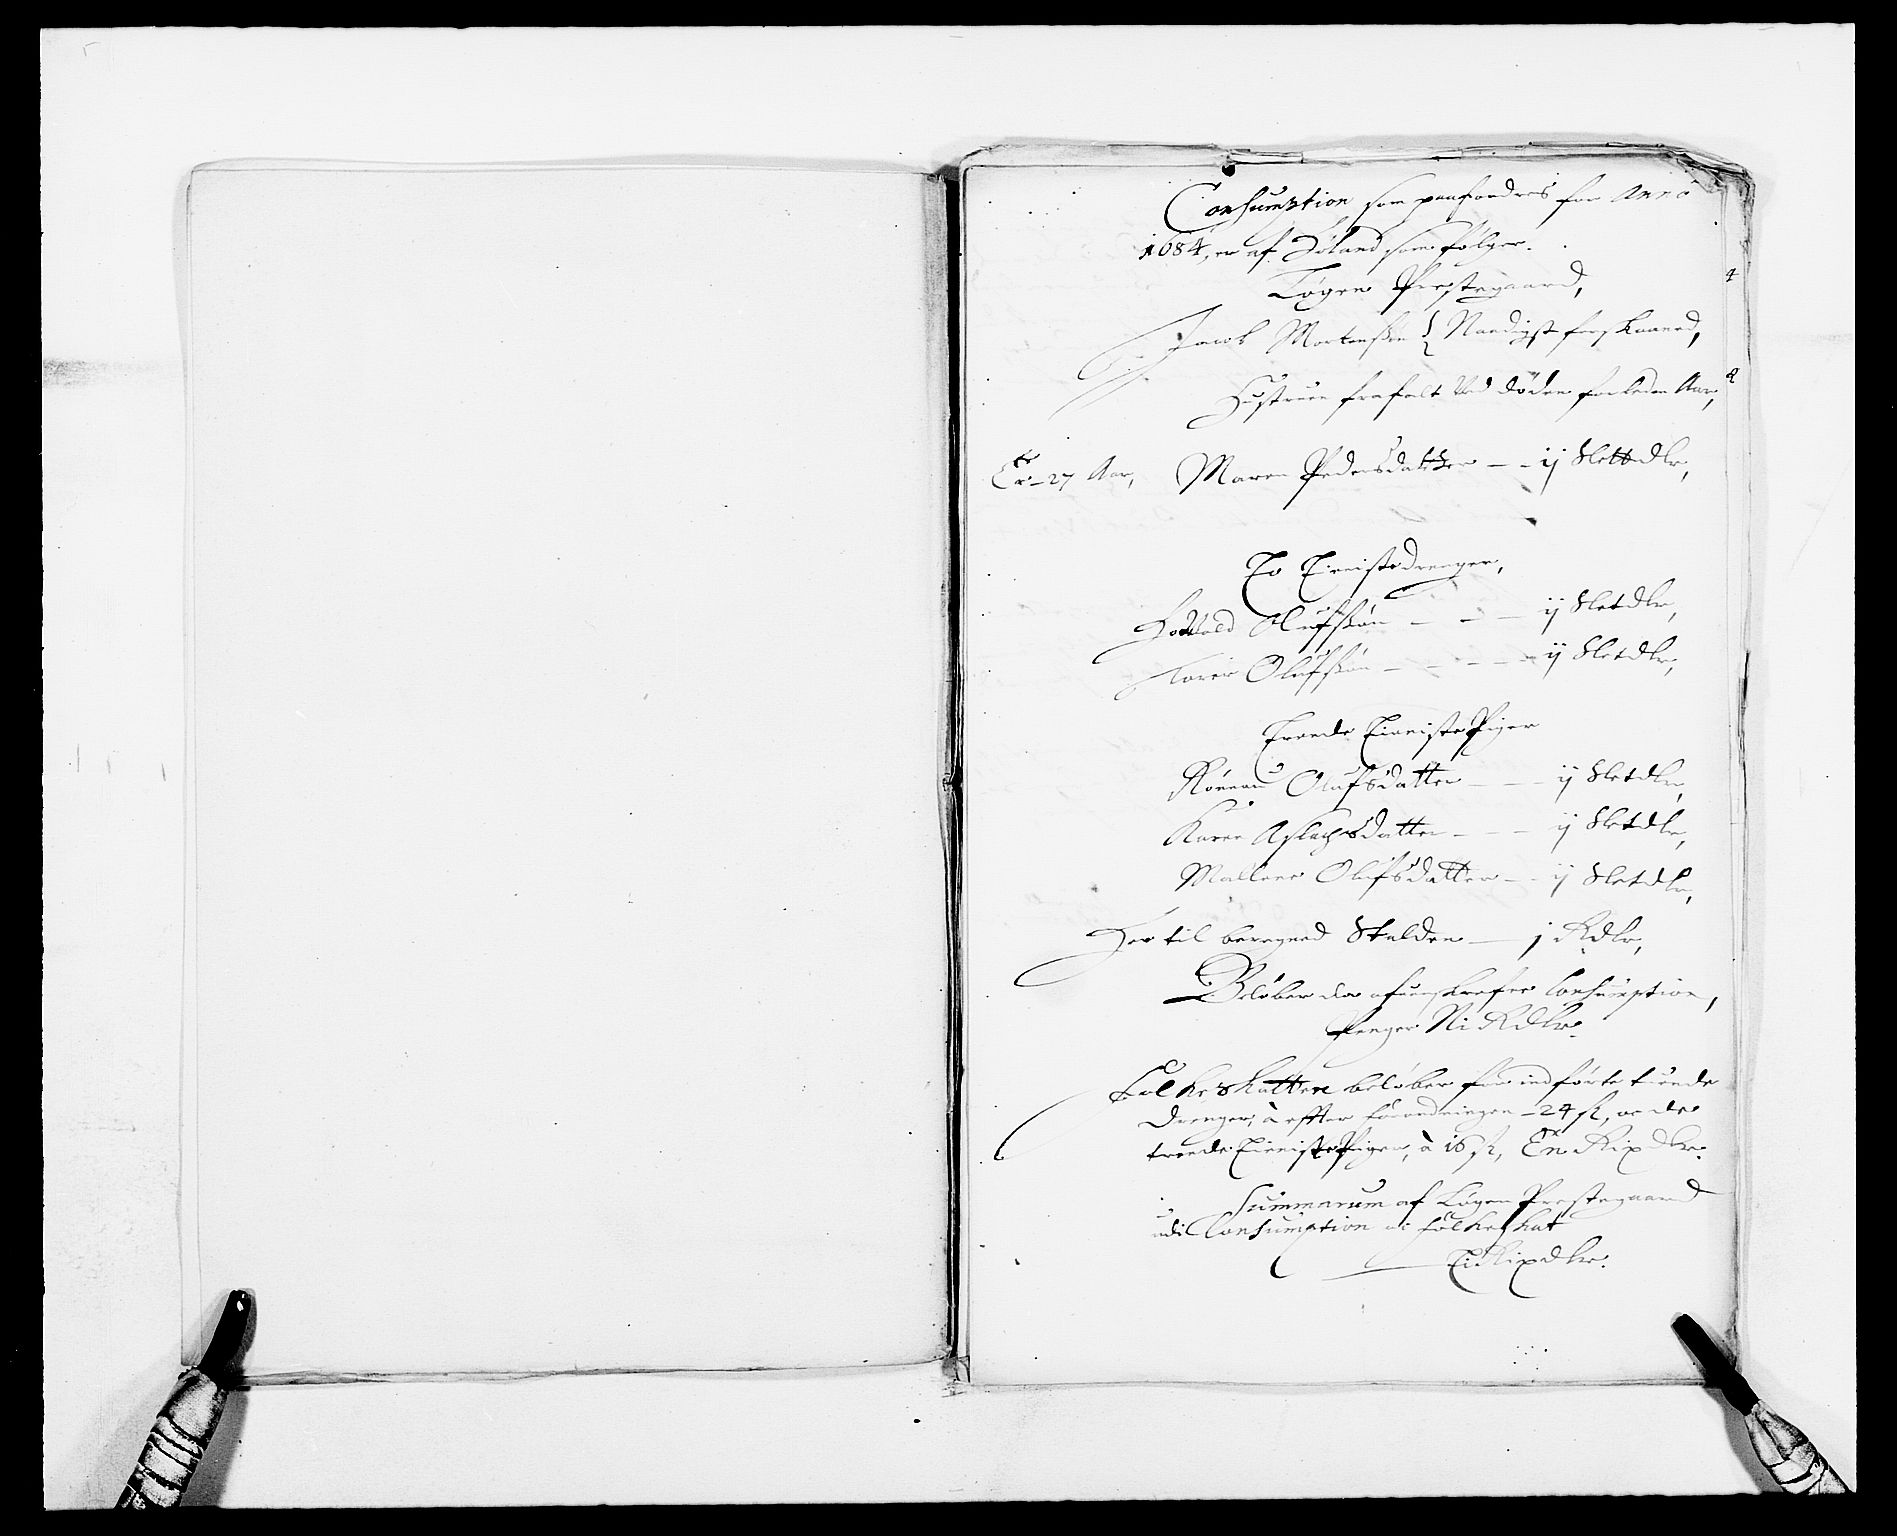 Consumption som paafordres for Anno
1684, er af Høland som følger.
Løgen Prestegaard,
Jacob Mortensøn Naadigst forskaaned,
Hustruen frafalt ved døden forleden Aar,
Er - 27 Aar, Maren Pedersdatter - - ij Slettedlr,
To Tieniste drenger,
Olufsøn - - - ij Sletdlr,
Olufsøn - - - - - ij Sletdlr,
Trende Tieniste Piger
Rønnou Olufsdatter - - - ij Sletdlr,
Karen Aslachsdatter - - - ij Sletdlr,
Mallene Olufsdatter - - ij Sletdlr,
Her til beregned Skulden - j Rdlr,
Beløber da Consumption,
Penger Ni Rdlr.
Folke Skatten beløber for indførte tuende
drenger, à effter forordningen - 24 sk, oc de
trende Tieniste Piger, à 16 sk, En Rixdlr.
Summarum af Løgen Prestegaard
udi Consumption oc folkeskat
- Ti Rixdlr.